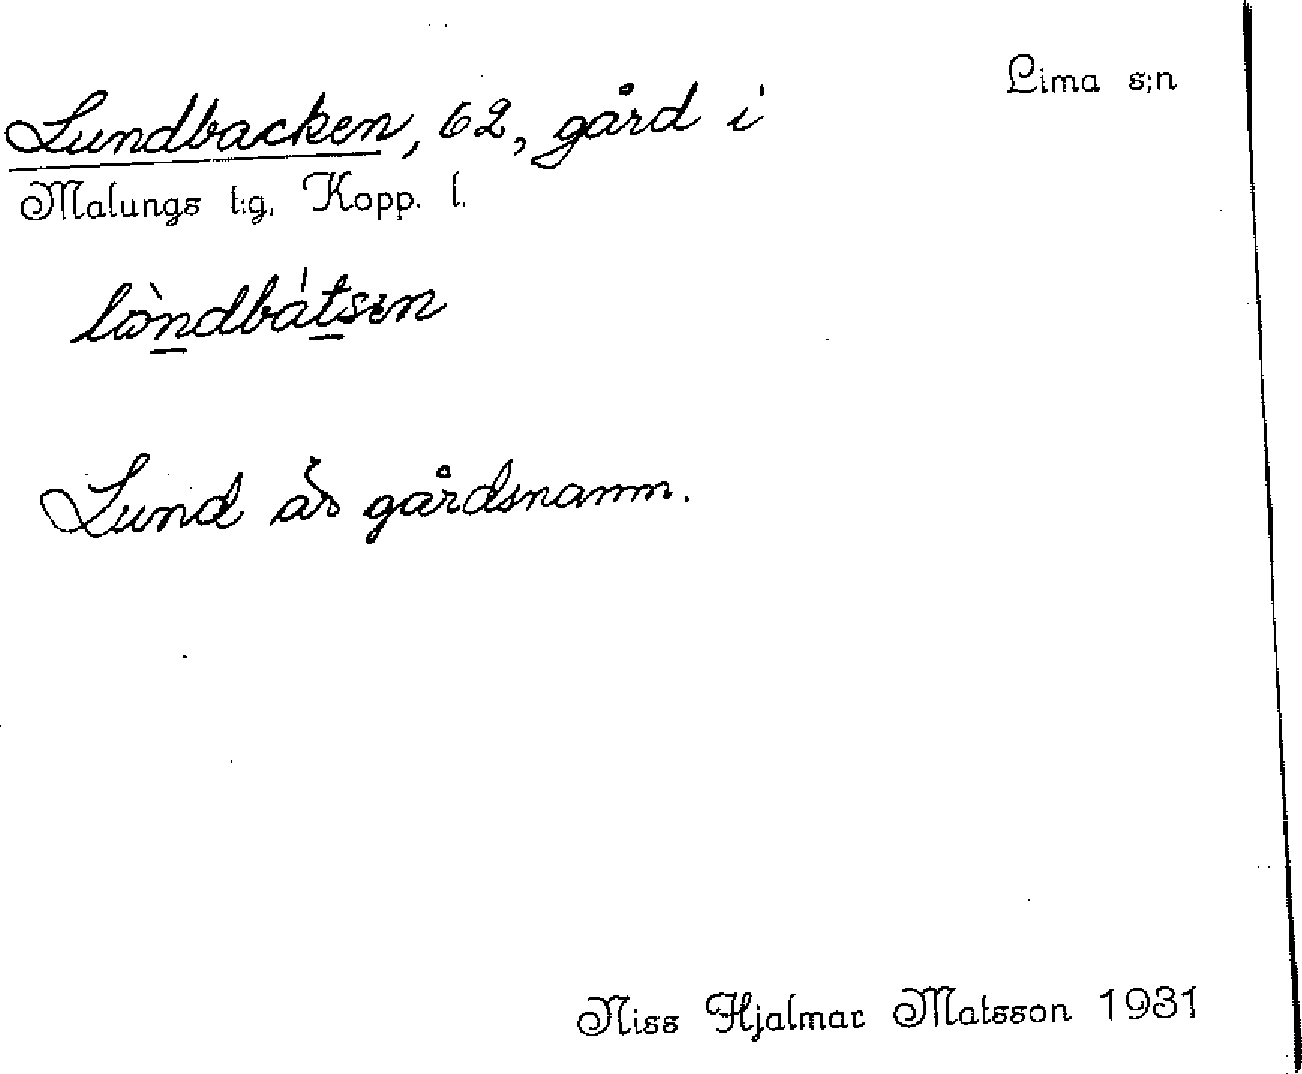 Lima s:n
Lundbacken, 62, gård i
Malungs t:g, Kopp. l.
lòndbátsen
Lund är gårdsnamn.
Niss Hjalmar Matsson 1931